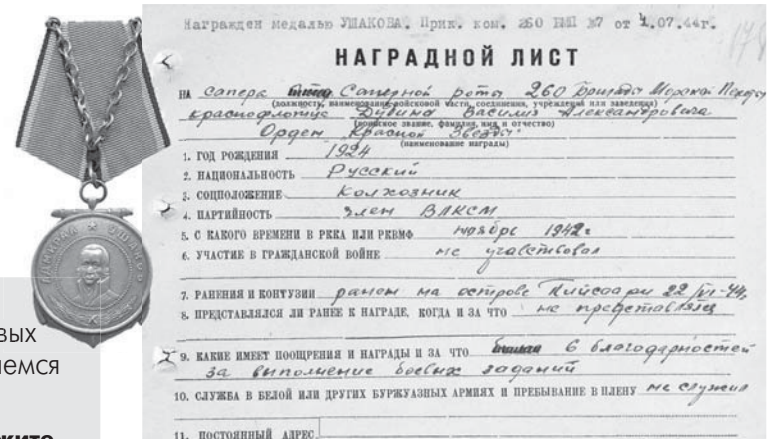 Награжден медалью УШАКОВА. Прик. ком. 260 БМП №7 от 4.07.44г.
НАГРАДНОЙ ЛИСТ
НА сапера Саперной роты 260 Бригады Морской Пехоты
(должность, наименование войсковой части, соединения, учреждения или заведения)
краснофлотца Дубина Василия Александровича
(воинское звание, фамилия, имя и отчество)
Орден Красной Звезды
(наименование награды)
1. ГОД РОЖДЕНИЯ 1924
2. НАЦИОНАЛЬНОСТЬ Русский
3. СОЦПОЛОЖЕНИЕ Колхозник
4. ПАРТИЙНОСТЬ член ВЛКСМ
5. С КАКОГО ВРЕМЕНИ В РККА ИЛИ РКВМФ ноябрь 1942г
6. УЧАСТИЕ В ГРАЖДАНСКОЙ ВОЙНЕ не участвовал
7. РАНЕНИЯ И КОНТУЗИИ ранен на острове Пийсаари 22/VI-44г
8. ПРЕДСТАВЛЯЛСЯ ЛИ РАНЕЕ К НАГРАДЕ, КОГДА И ЗА ЧТО не представлялся
9. КАКИЕ ИМЕЕТ ПООЩРЕНИЯ И НАГРАДЫ И ЗА ЧТО 6 благодарностей
за выполнение боевых заданий
10. СЛУЖБА В БЕЛОЙ ИЛИ ДРУГИХ БУРЖУАЗНЫХ АРМИЯХ И ПРЕБЫВАНИЕ В ПЛЕНУ не служил
11. ПОСТОЯННЫЙ АДРЕС
АДМИРАЛ УШАКОВ